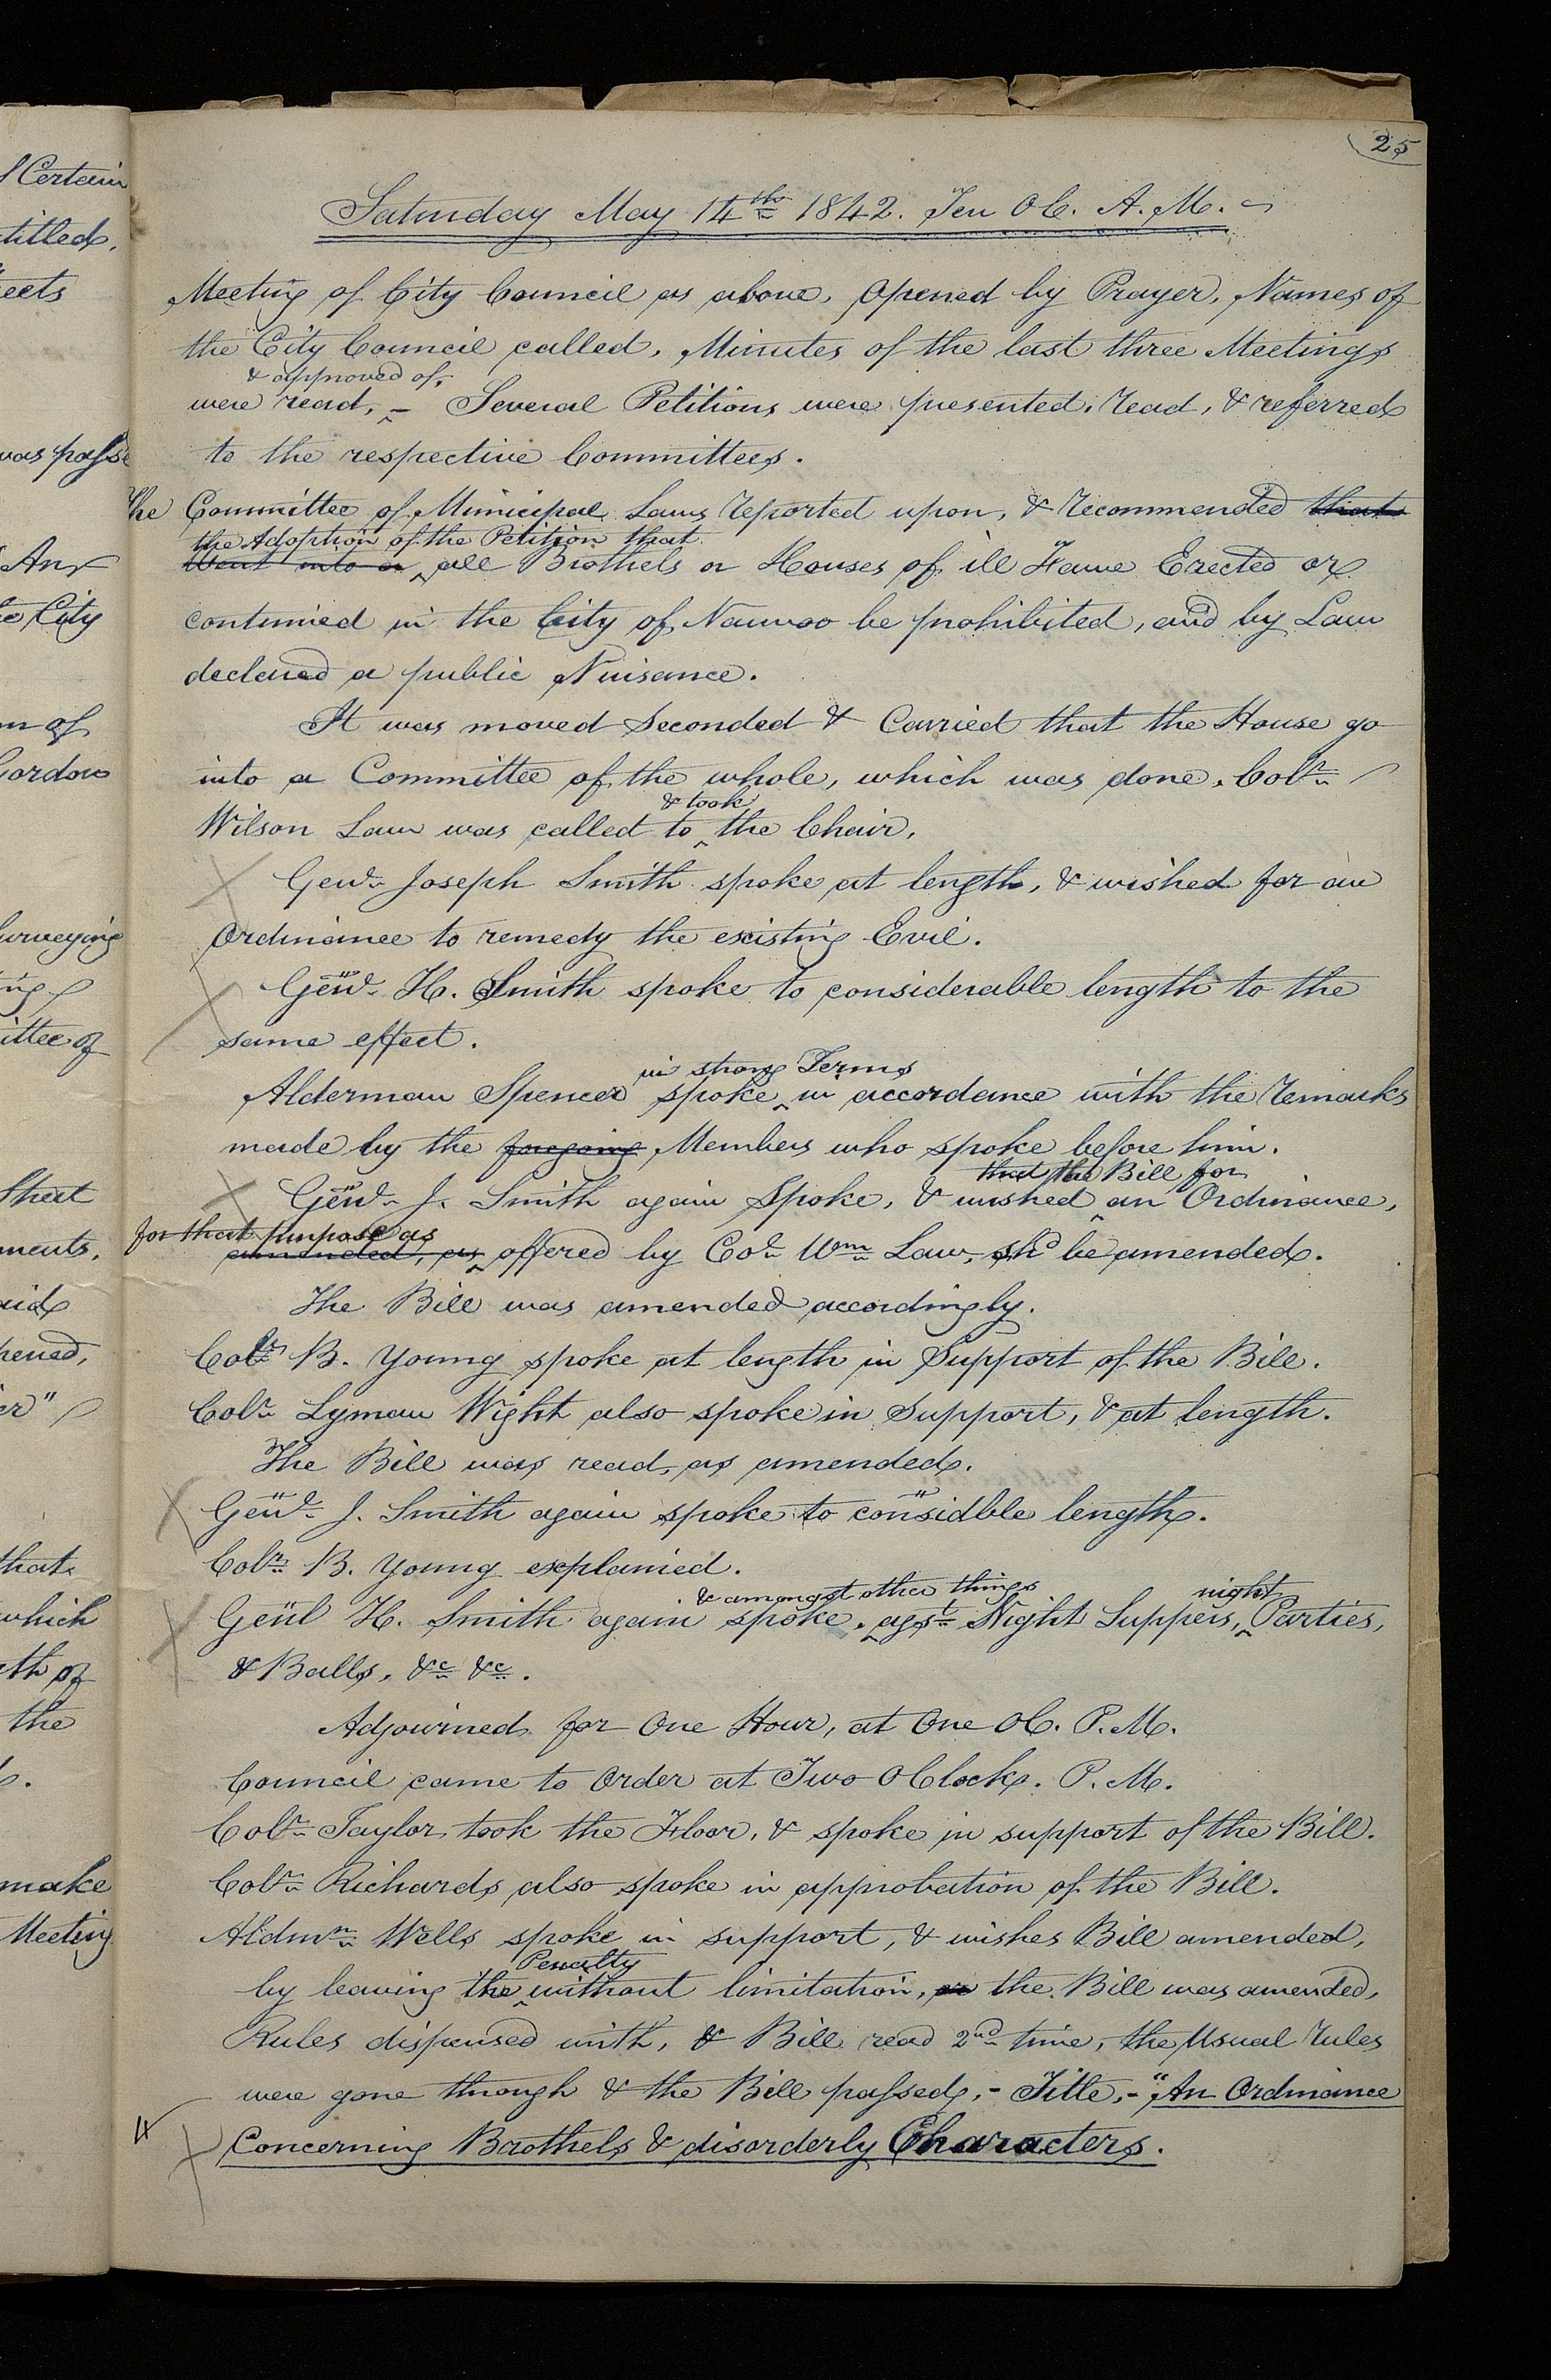 25
Saturday May 14th 1842. Ten OC. A.M.
Meeting of City Council as above, Opened by Prayer, Names of
the City Council called, Minutes of the last three Meetings
& approved of,
were read, - Several Petitions were presented, read, & referred
to the respective Committees.
The Committee of Municipal Laws reported upon, & recommended that
the Adoption of the Petition that
Went into a all Brothels or Houses of ill Fame Erected or
continued in the City of Nauvoo be prohibited, and by Law
declared a public Nuisance.
It was moved Seconded & Carried that the House go
into a Committee of the whole, which was done, Colr
& took
Wilson Law was called to the Chair,
Genl Joseph Smith spoke at length, & wished for an
Ordinance to remedy the existing Evil.
Genl H. Smith spoke to considerable length to the
same effect.
in strong Terms
Alderman Spencer spoke in accordance with the remarks
made by the foregoing Members who spoke before him.
that the Bill for
Genl J. Smith again Spoke, & wished an Ordinance,
for that purpose as
amended, as offered by Col Wm Law, shd be amended.
The Bill was amended accordingly.
Colr B. Young spoke at length in Support of the Bill.
Colr Lyman Wight also spoke in Support, & at length.
The Bill was read, as amended.
Genl J. Smith again spoke to considble length.
Colr B. Young explained.
& amongst other things night
Genl H. Smith again spoke, agst Night Suppers, Parties,
& Balls, &c &c.
Adjourned for One Hour, at One OC. P.M.
Council came to Order at Two OClock. P.M.
Colr Taylor took the Floor, & spoke in support of the Bill.
Colr Richards also spoke in approbation of the Bill.
Aldmn Wells spoke in support, & wishes Bill amended,
Penalty
by leaving the without limitation, the Bill was amended,
Rules dispensed with, & Bill read 2nd time, the Usual rules
were gone through & the Bill passed, - Title, - "An Ordinance
Concerning Brothels & disorderly Characters.
Certain
titled,
eets
was passe
An
City
of
Gordon
urveying
ittee of
that
ments,
that
which
th of
the
make
Meeting